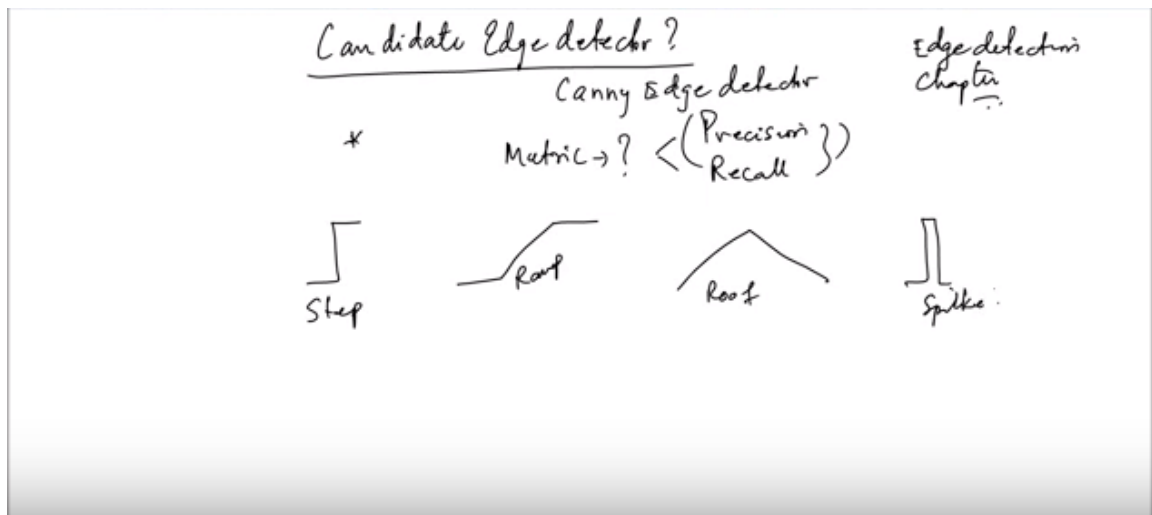 Candidate Edge detector?
Edge detection
Chapter
Canny Edge detector
*
Metric → ? < ( Precision
Recall } )
Step
Ramp
Roof
Spike